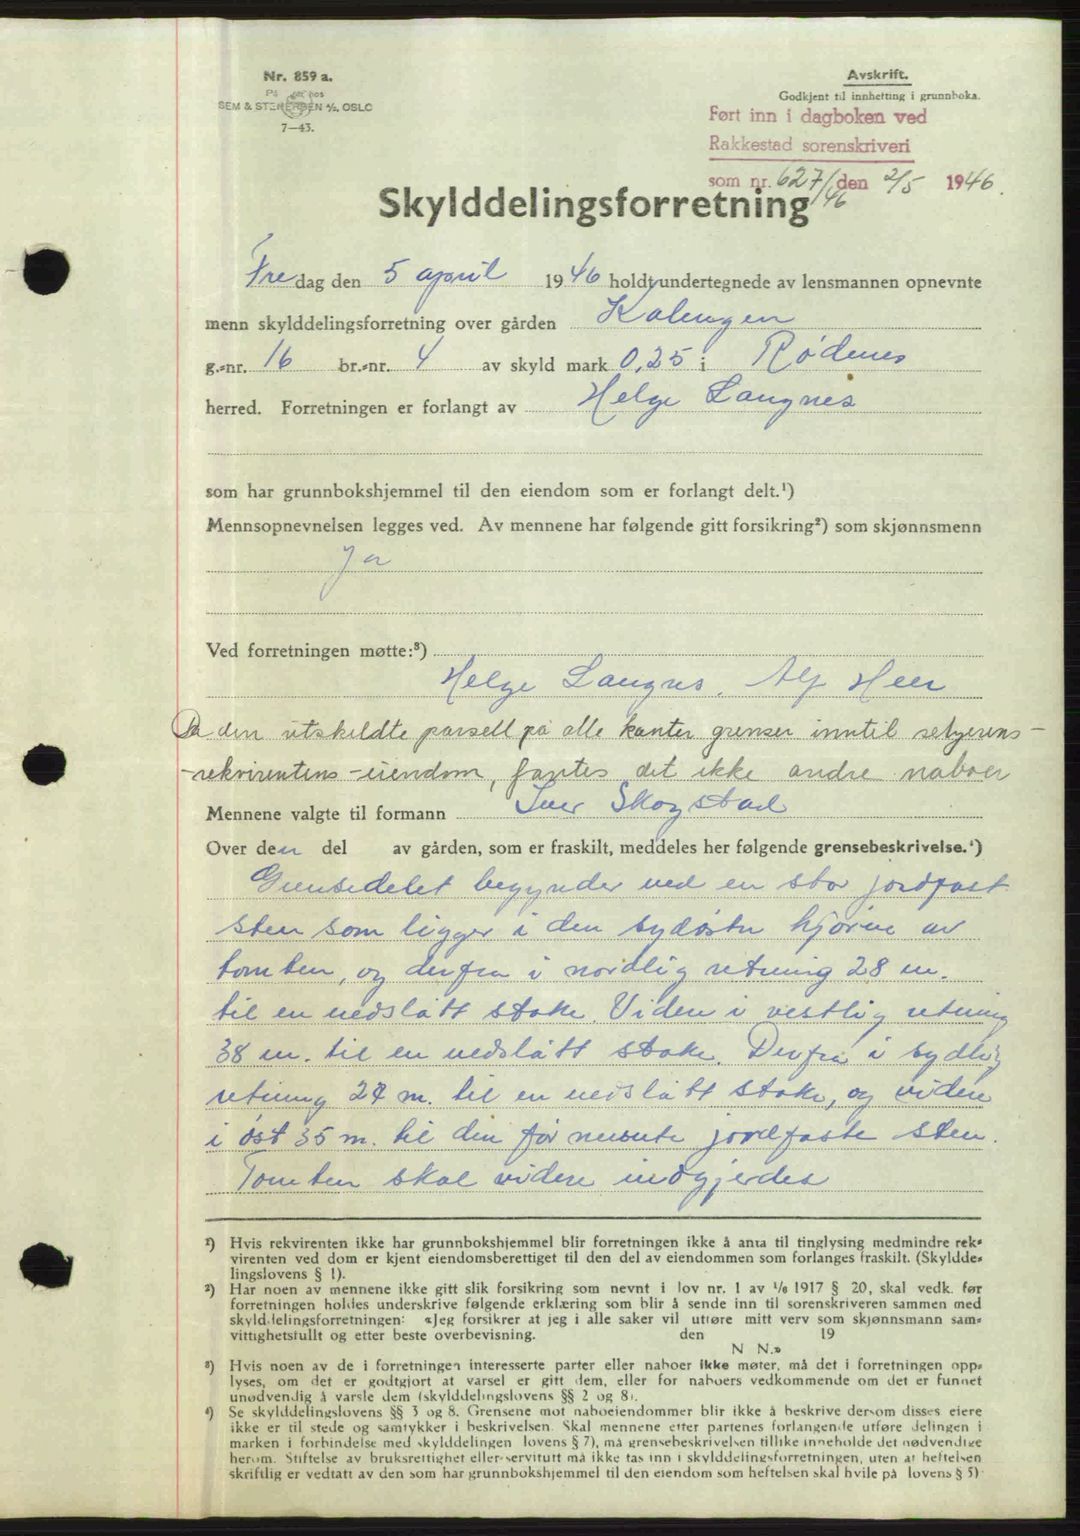 Nr. 859 a.
På hos
SEM & STENERSEN A/S, OSLO
7—43.
Avskrift.
Godkjent til innhefting i grunnboka.
Ført inn i dagboken ved
Rakkestad sorenskriveri
som nr. 627/46 den 2/5 1946.
Skylddelingsforretning
Fredag den 5 april 1946 holdt undertegnede av lensmannen opnevnte
menn skylddelingsforretning over gården Kalengen
g.-nr. 16 br.-nr. 4 av skyld mark 0,25 i Rødenes
herred. Forretningen er forlangt av Helge Langnes
som har grunnbokshjemmel til den eiendom som er forlangt delt.¹)
Mennsopnevnelsen legges ved. Av mennene har følgende gitt forsikring²) som skjønnsmenn
Ja
Ved forretningen møtte:³)
Helge Langnes. Alf Heer
Da den utskildte parsell på alle kanter grenser inntil selgerens-
-rekvirentens-eiendom, fantes det ikke andre naboer
Mennene valgte til formann Iver Skogstad
Over den del av gården, som er fraskilt, meddeles her følgende grensebeskrivelse.⁴)
Grensedelet begynder ved en stor jordfast
sten som ligger i den sydøstre hjørne av
tomten, og derfra i nordlig retning 28 m.
til en nedslått stake. Videre i vestlig retning
38 m. til en nedslått stake. Derfra i sydlig
retning 27 m. til en nedslått stake, og videre
i øst 35 m. til den før nevnte jordfaste sten.
Tomten skal videre indgjerdes
¹) Hvis rekvirenten ikke har grunnbokshjemmel blir forretningen ikke å anta til tinglysing medmindre rek-
virenten ved dom er kjent eiendomsberettiget til den del av eiendommen som forlanges fraskilt. (Skyldde-
lingslovens § 1).
²) Har noen av mennene ikke gitt slik forsikring som nevnt i lov nr. 1 av 1/6 1917 § 20, skal vedk. før
forretningen holdes underskrive følgende erklæring som blir å sende inn til sorenskriveren sammen med
skylddelingsforretningen: «Jeg forsikrer at jeg i alle saker vil utføre mitt verv som skjønnsmann sam-
vittighetsfullt og etter beste overbevisning. den 19
N N.»
³) Hvis noen av de i forretningen interesserte parter eller naboer ikke møter, må det i forretningen opp-
lyses, om det er godtgjort at varsel er gitt dem, eller for naboers vedkommende om det er funnet
unødvendig å varsle dem (skylddelingslovens §§ 2 og 8).
⁴) Se skylddelingslovens §§ 3 og 8. Grensene mot naboeiendommer blir ikke å beskrive dersom disses eiere
ikke er til stede og samtykker i beskrivelsen. Skal mennene etter partenes forlangende utføre delingen i
marken i forbindelse med skylddelingen lovens § 7), må grensebeskrivelsen tillike inneholde det nødvendige
herom. Stiftelse av bruksrettighet eller servitutt må ikke tas inn i skylddelingsforretningen, uten at heftelsen
skriftlig er vedtatt av den som har grunnbokshjemmel til den eiendom som heftelsen skal hvile på lovens § 5)